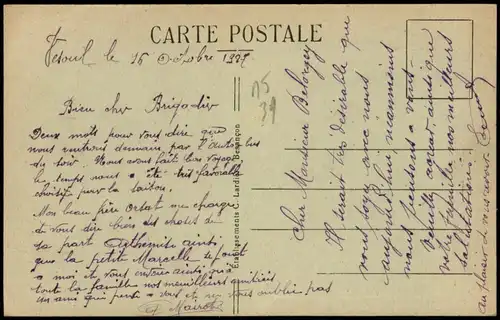 CARTE POSTALE
Vesoul le 16 Octobre 1927
Bien cher Brigadier
Deux mots pour vous dire que
nous rentrons demain par l'autobus
du soir. Nous avons fait bon voyage
le temps nous a été très favorable
choisit pour la saison.
Mon beau père me charge
de vous dire bien des choses de
sa part ainsi
que la petite Marcelle
à moi et vous envoie ainsi qu'à
toute la famille nos meilleurs amitiés
un ami qui pense à vous et ne vous oublie pas
Mairot
Etablissements C. Lardier, Besançon
Cher Monsieur
Il serait très désirable que
vous soyez avec nous
aujourd'hui néanmoins
nous pensons à vous
Veuillez agréer ainsi que
votre famille nos meilleurs
salutations.
au plaisir de vous revoir